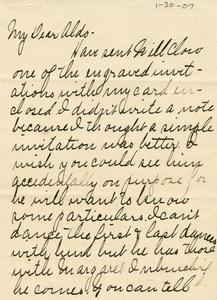 1-30-07
My Dear Aldo-
Have sent Will Chow
one of the engraved invit-
ations with my card en-
closed I didn't write a note
because I thought a simple
invitation was better. I
wish you could see him
accidentally on purpose for
he will want to know
some particulars. I can't
dance the first & last dances
with him but he has those
with Margaret
he comes. You can tell